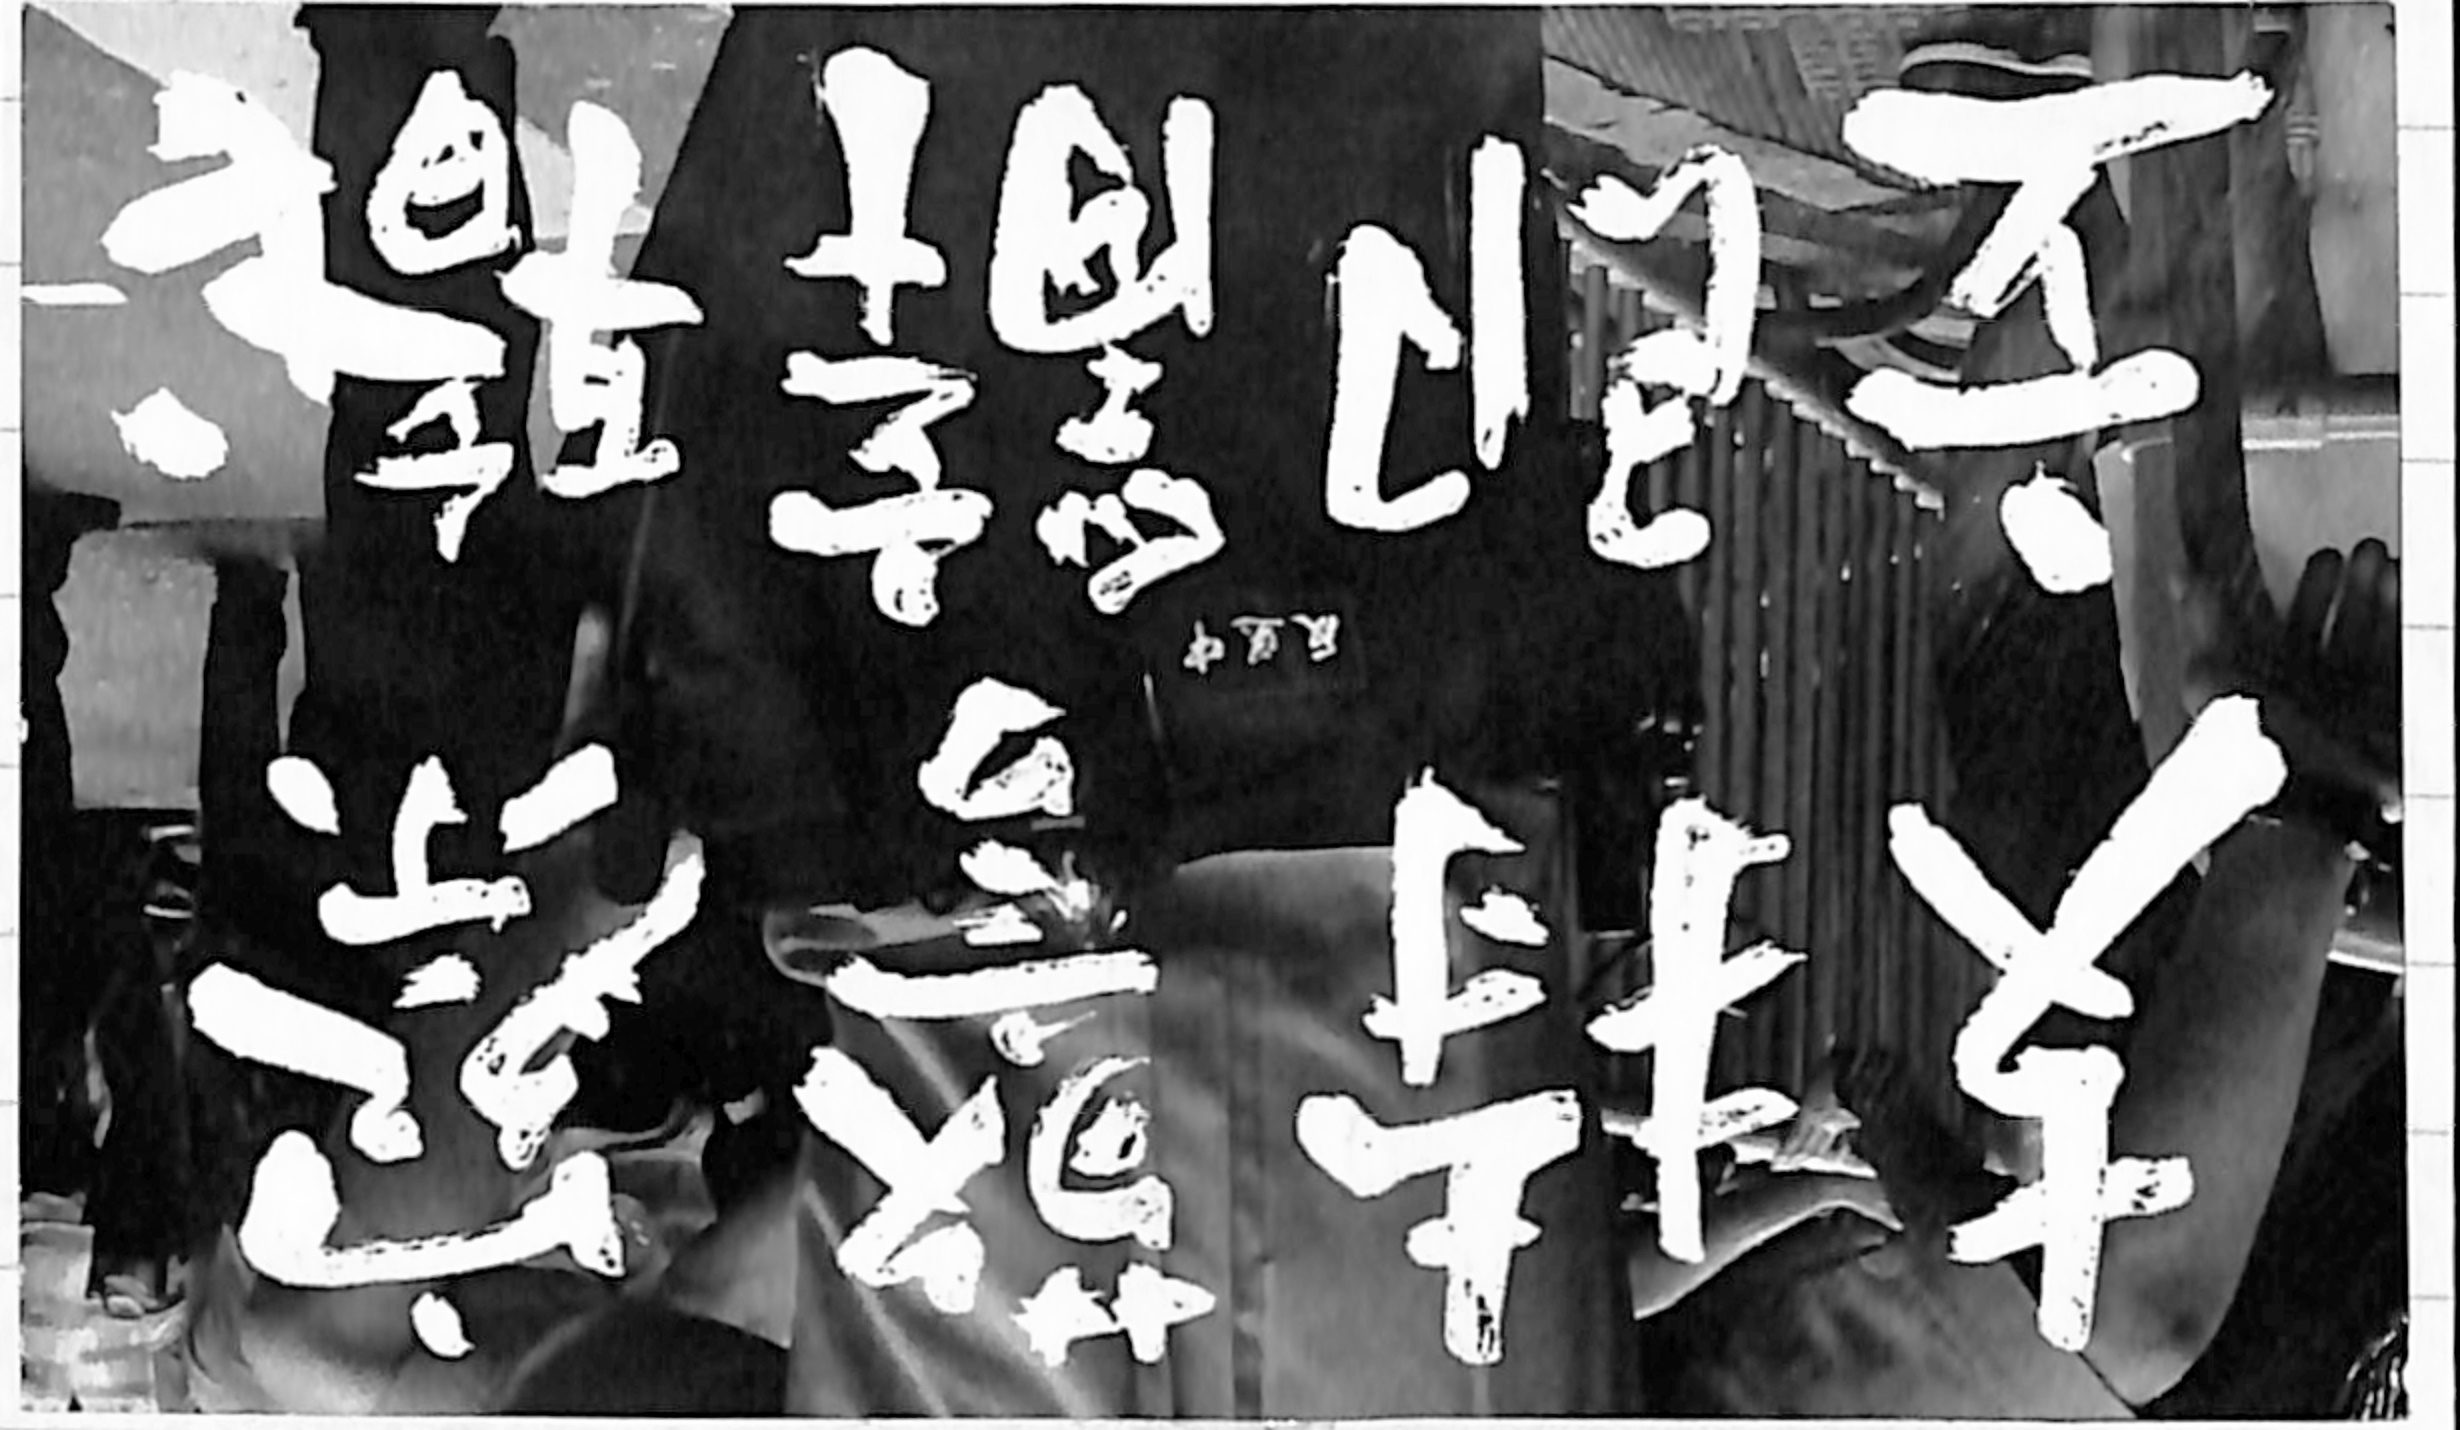 支持警察
反送中
立即辭職